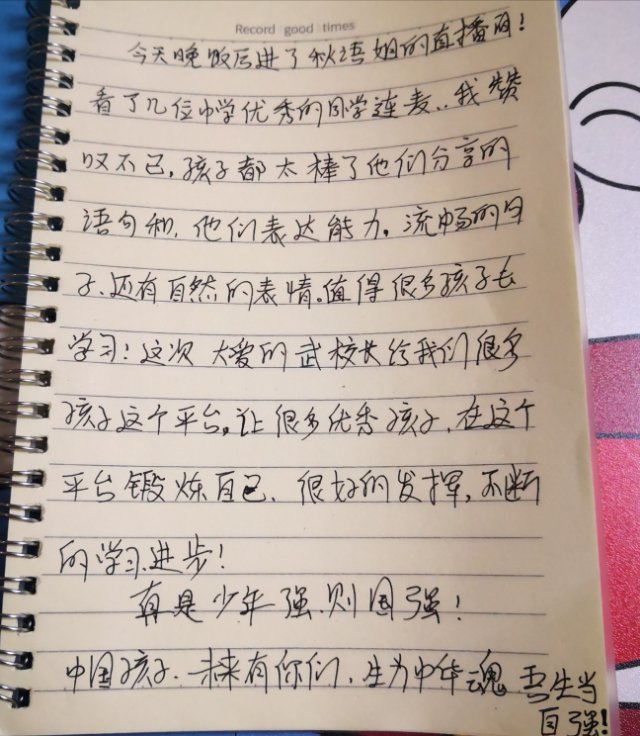 Record good times
今天晚饭后进了秋语姐的直播间!
看了几位中学优秀的同学连麦..我赞
叹不已,孩子都太棒了他们分享的
语句和,他们表达能力。流畅的句
子.还有自然的表情。值得很多孩子去
学习!这次大爱的武校长给我们很多
孩子这个平台。让很多优秀孩子.在这个
平台锻炼自己.很好的发挥,不断
的学习.进步!
真是少年强.则国强!
中国孩子.未来有你们.生为中华魂 吾生当
自强!